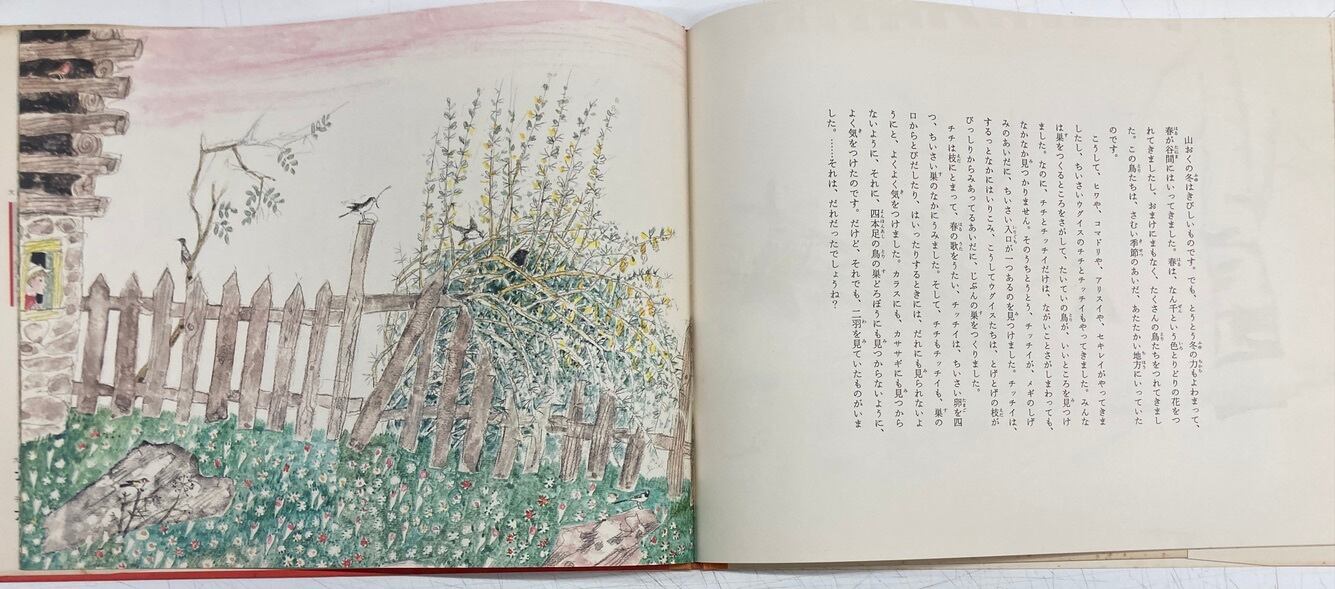 山おくの冬はきびしいものです。でも、とうとう冬の力もよわまって、
春が谷間にはいってきました。春は、なん千という色とりどりの花をつ
れてきましたし、おまけにまもなく、たくさんの鳥たちをつれてきまし
た。この鳥たちは、さむい季節のあいだ、あたたかい地方にいっていた
のです。
こうして、ヒワや、コマドリや、アリスイや、セキレイがやってきま
したし、ちいさいウグイスのチチとチッチイもやってきました。みんな
は巣をつくるところをさがして、たいていの鳥が、いいところを見つけ
ました。なのに、チチとチッチイだけは、ながいことさがしまわっても、
なかなか見つかりません。そのうちとうとう、チッチイが、メギのしげ
みのあいだに、ちいさい入口が一つあるのを見つけました。チッチイは、
するっとなかにはいりこみ、こうしてウグイスたちは、とげとげの枝が
びっしりからみあってるあいだに、じぶんの巣をつくりました。
チチは枝にとまって、春の歌をうたい、チッチイは、ちいさい卵を四
つ、ちいさい巣のなかにうみました。そして、チチもチッチイも、巣の
口からとびだしたり、はいったりするときには、だれにも見られないよ
うにと、よくよく気をつけました。カラスにも、カササギにも見つから
ないように、それに、四本足の鳥の巣どろぼうにも見つからないように、
よく気をつけたのです。だけど、それでも、二羽を見ていたものがいま
した。……それは、だれだったでしょうね？